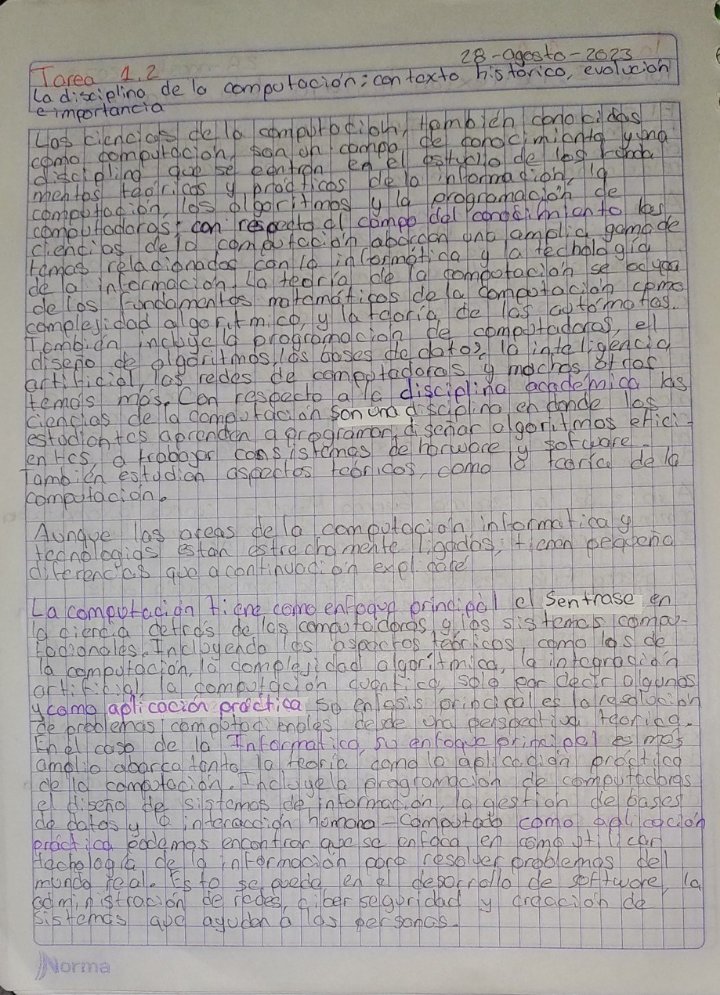 28-agosto-2023
Tarea 1.2
La disciplina de la computación: contexto histórico, evolución
e importancia
Las ciencias de la computación, también conocidas
como computación, son un campo de conocimiento y una
disciplina que se centran en el estudio de los funda
mentos teóricos y prácticos de la información, la
computación, los algoritmos y la programación de
computadoras; con respecto al campo del conocimiento las
ciencias de la computación abarcan una amplia gama de
temas relacionados con la informática y la tecnología
de la información. La teoría de la computación se ocupa
de los fundamentos matemáticos de la computación como
complejidad algoritmico, y la teoría de los autómatas.
También incluye la programación de computadoras, el
diseño de algoritmos, los bases de datos, la inteligencia
artificial, las redes de computadoras y muchos otros
temas más. Con respecto a la disciplina académica las
ciencias de la computación son una disciplina en donde los
estudiantes aprenden a programar, diseñar algoritmos efici-
entes, a trabajar con sistemas de harware y sofware.
También estudian aspectos teóricos, como la teoría de la
computación.
Aunque las areas de la computación informatica y
tecnologias estan estrechamente ligados, tienen pequeña
diferencias que a continuación explicare
La computación tiene como enfoque principal el Sentrase en
la ciencia detrás de las computadoras y los sistemas compu-
tacionales. Incluyendo los aspectos teóricos, como los de
la computación, la complejidad algorítmica, la integración
artificial, la computación cuantica, solo por decir algunos
y como aplicación práctica su enfasis principal es la resolución
de problemas computacionales desde una perspectiva teorica.
En el caso de la Informatica, su enfoque principal es más
amplio abarca tanto la teoria como la aplicación práctica
de la computación. Incluye la programación de computadoras
el diseño de sistemas de información, la gestión de bases
de datos y la interacción humano-computado como aplicación
práctica podemos encontrar que se enfoca en como utilizar
tecnologia de la información para resolver problemas del
mundo real. Esto se puede en el desarrollo de software, la
administración de redes, ciberseguridad y creación de
sistemas que ayudan a las personas.
Norma